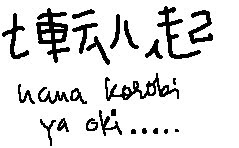 七転八起
nana korobi
ya oki.....